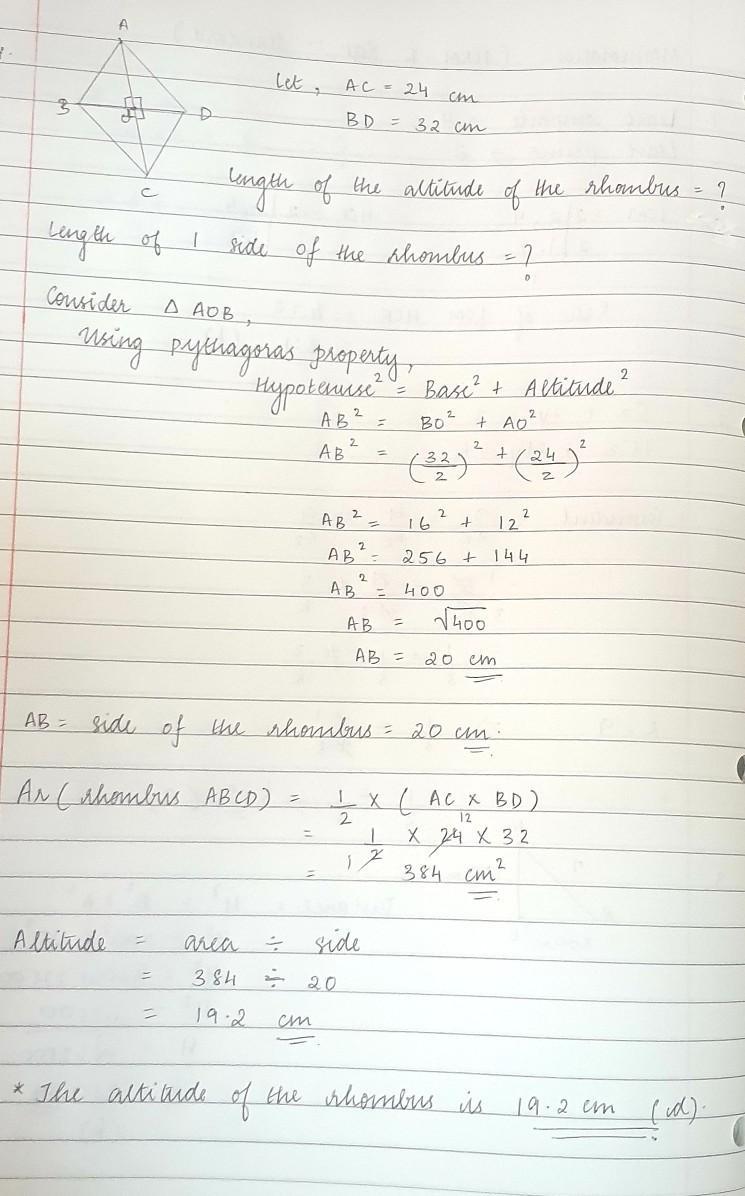 A
B
O
D
C
Let, AC = 24 cm
BD = 32 cm
Length of the altitude of the rhombus = ?
Length of 1 side of the rhombus = ?
Consider △ AOB,
Using pythagoras property,
Hypotenuse² = Base² + Altitude²
AB² = BO² + AO²
AB² = (32/2)² + (24/2)²
AB² = 16² + 12²
AB² = 256 + 144
AB² = 400
AB = √400
AB = 20 cm
AB = side of the rhombus = 20 cm.
Ar (rhombus ABCD) = 1/2 × (AC × BD)
12
= 1/2 × 24 × 32
1
= 384 cm²
Altitude = area ÷ side
= 384 ÷ 20
= 19.2 cm
* The altitude of the rhombus is 19.2 cm (d).